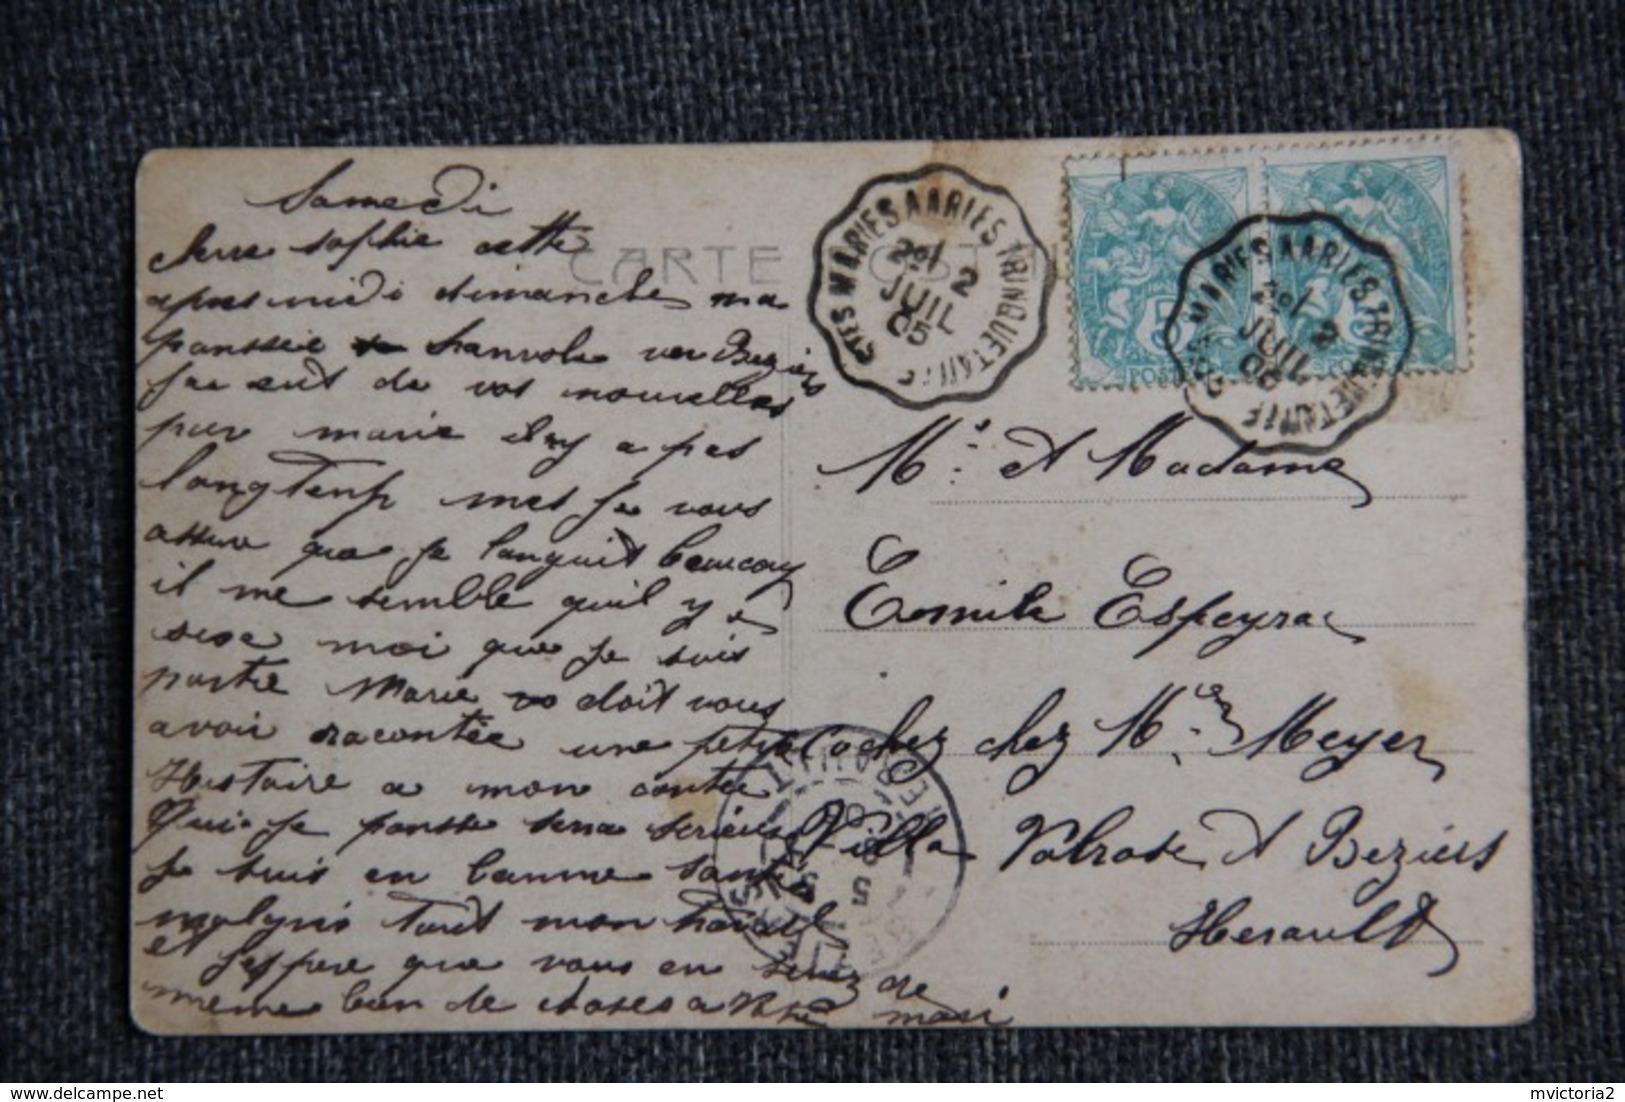 Samedi
chere sophie cette
apres midi dimanche ma
pansseé sanvole ver Beziers
Jae eut de vos nouvelles
par marie il ny a pas
longtenp mes Je vous
assure que Je languit beaucoup
il me semble quil y a
sise moi que Je suis
partie Marie doit vous
avoir racontée une petite
Histoire a mon contée
Qui Je pansse sera serieuse
Je suis en bonne santé
malgris tout mon travail
et J'espere que vous en serez de
meme bien de choses a votre mari
CARTE POSTALE
STES MARIES A ARLES TRINQUETAILLE
2e/ 2
JUIL
05
STES MARIES A ARLES TRINQUETAILLE
2e/ 2
JUIL
05
5
POSTES
5
POSTES
Mr. et Madame
Emile Espeyrac
Cochez chez Mr. Meyer
Villa Valrose à Beziers
Herault
BEZIERS
HERAULT
mvictoria2